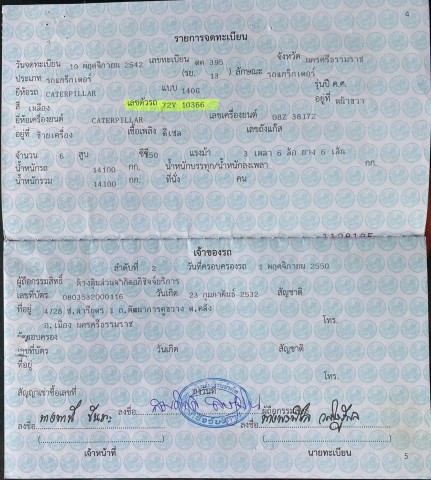 4
รายการจดทะเบียน
วันจดทะเบียน 19 พฤศจิกายน 2542 เลขทะเบียน ตค 395 จังหวัด นครศรีธรรมราช
ประเภท รถแทร็กเตอร์ (รย. 13 ) ลักษณะ รถแทร็กเตอร์
ยี่ห้อรถ CATERPILLAR แบบ 140G รุ่นปี ค.ศ.
สี เหลือง เลขตัวรถ 72V 10366 อยู่ที่ หน้าขวา
ยี่ห้อเครื่องยนต์ CATERPILLAR เลขเครื่องยนต์ 08Z 36172
อยู่ที่ ซ้ายเครื่อง เชื้อเพลิง ดีเซล เลขถังแก๊ส
จำนวน 6 สูบ ซีซี แรงม้า 3 เพลา 6 ล้อ ยาง 6 เส้น
น้ำหนักรถ 14100 กก. น้ำหนักบรรทุก/น้ำหนักลงเพลา กก.
น้ำหนักรวม 14100 กก. ที่นั่ง คน
เจ้าของรถ
ลำดับที่ 2 วันที่ครอบครองรถ 1 พฤศจิกายน 2550
ผู้ถือกรรมสิทธิ์
เลขที่บัตร 0803532000116 วันเกิด 23 กุมภาพันธ์ 2532 สัญชาติ
ที่อยู่ 4/28 ถ.พัฒนาการคูขวาง ต.คลัง
อ.เมือง นครศรีธรรมราช โทร.
ผู้ครอบครอง
เลขที่บัตร วันเกิด สัญชาติ
ที่อยู่ โทร.
สัญญาเช่าซื้อเลขที่ ลงวันที่
ลงชื่อ ลงชื่อ ผู้ถือกรรมสิทธิ์
ลงชื่อ
เจ้าหน้าที่ นายทะเบียน
5